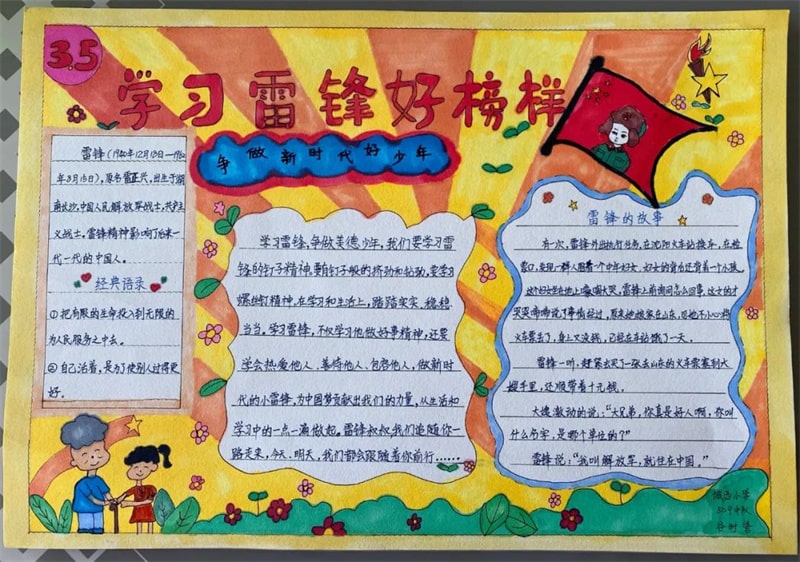 3.5
学习雷锋好榜样
争做新时代好少年
雷锋(1940年12月18日—1962
年8月15日),原名雷正兴,出生于湖
南长沙,中国人民解放军战士,共产主
义战士。雷锋精神影响了后来一
代一代的中国人。
经典语录
①把有限的生命投入到无限的
为人民服务之中去。
②自己活着,是为了使别人过得更
好。
学习雷锋,争做美德少年,我们要学习雷
锋的钉子精神,要有钉子般的挤劲和钻劲,要学习
螺丝钉精神,在学习和生活上,踏踏实实、稳稳
当当。学习雷锋,不仅学习他做好事精神,还要
学会热爱他人、善待他人、包容他人,做新时
代的小雷锋,为中国梦贡献出我们的力量,从生活和
学习中的一点一滴做起。雷锋叔叔,我们追随你一
路走来,今天、明天,我们都会跟随着你前行……
雷锋的故事
有一次,雷锋外出执行任务,在沈阳火车站换车,在检
票口,发现一群人围着一个中年妇女,妇女的背上还背着一个小孩。
这个妇女坐在地上嚎啕大哭,雷锋上前询问怎么回事,这女的才
哭哭啼啼说了事情经过,原来她娘家在山东,因她不小心将
火车票丢了,身上又没钱,已经在车站饿了一天。
雷锋一听,赶紧去买了一张去山东的火车票塞到大
嫂手里,还顺带着十元钱。
大嫂激动的说:“大兄弟,你真是好人啊,你叫
什么名字,是哪个单位的?”
雷锋说:“我叫解放军,就住在中国。”
小学
中队